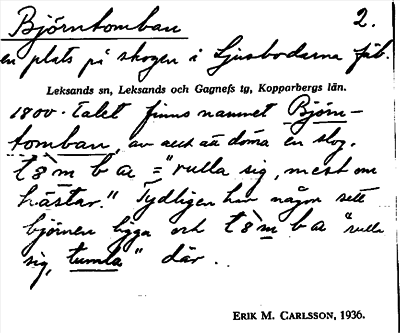 Björntomban 2.
en plats på skogen i Ljusbodarna fäb.
Leksands sn, Leksands och Gagnefs tg, Kopparbergs län.
1800-talet finns namnet Björn-
tomban, av allt att döma en slog.
"rulla sig, mest om
hästar." Tydligen har någon sett
björnen ligga och "rulla
sig, tumla" där.
ERIK M. CARLSSON, 1936.